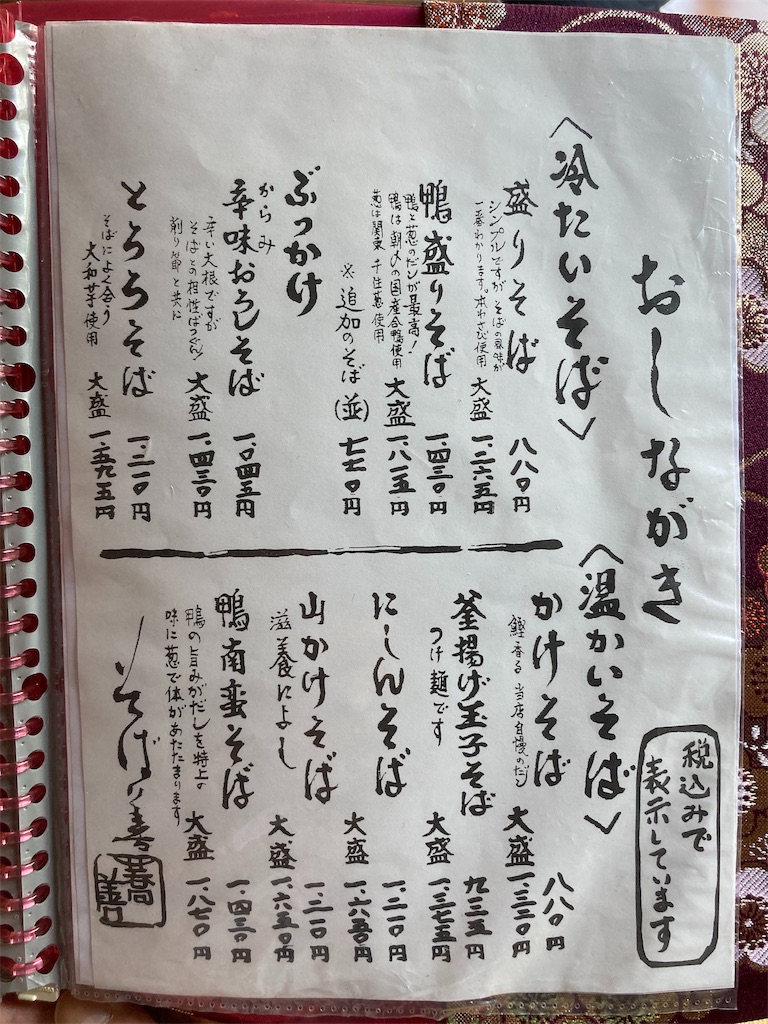 おしながき
税込みで
表示しています
〈冷たいそば〉
盛りそば 八八〇円
シンプルですが そばの風味が
一番わかります。本わさび使用
大盛 一、二六五円
鴨盛りそば 一、四三〇円
鴨と葱のだしが最高!
鴨は朝〆の国産合鴨使用
葱は関東 千住葱使用
大盛 一、八一五円
※追加のそば(並) 七七〇円
ぶっかけ
からみ
辛味おろしそば 一、〇四五円
辛い大根ですが
そばとの相性ばつぐん!
削り節と共に
大盛 一、四三〇円
とろろそば 一、二一〇円
そばによく合う
大和芋使用
大盛 一、五九五円
〈温かいそば〉
かけそば 八八〇円
鰹香る 当店自慢のだし
大盛 一、三二〇円
釜揚げ玉子そば 九三五円
つけ麺です
大盛 一、三七五円
にしんそば 一、二一〇円
大盛 一、六五〇円
山かけそば 一、二一〇円
滋養によし
大盛 一、六五〇円
鴨南蛮そば 一、四三〇円
鴨の旨みがだしを特上の
味に葱で体があたたまります
大盛 一、八七〇円